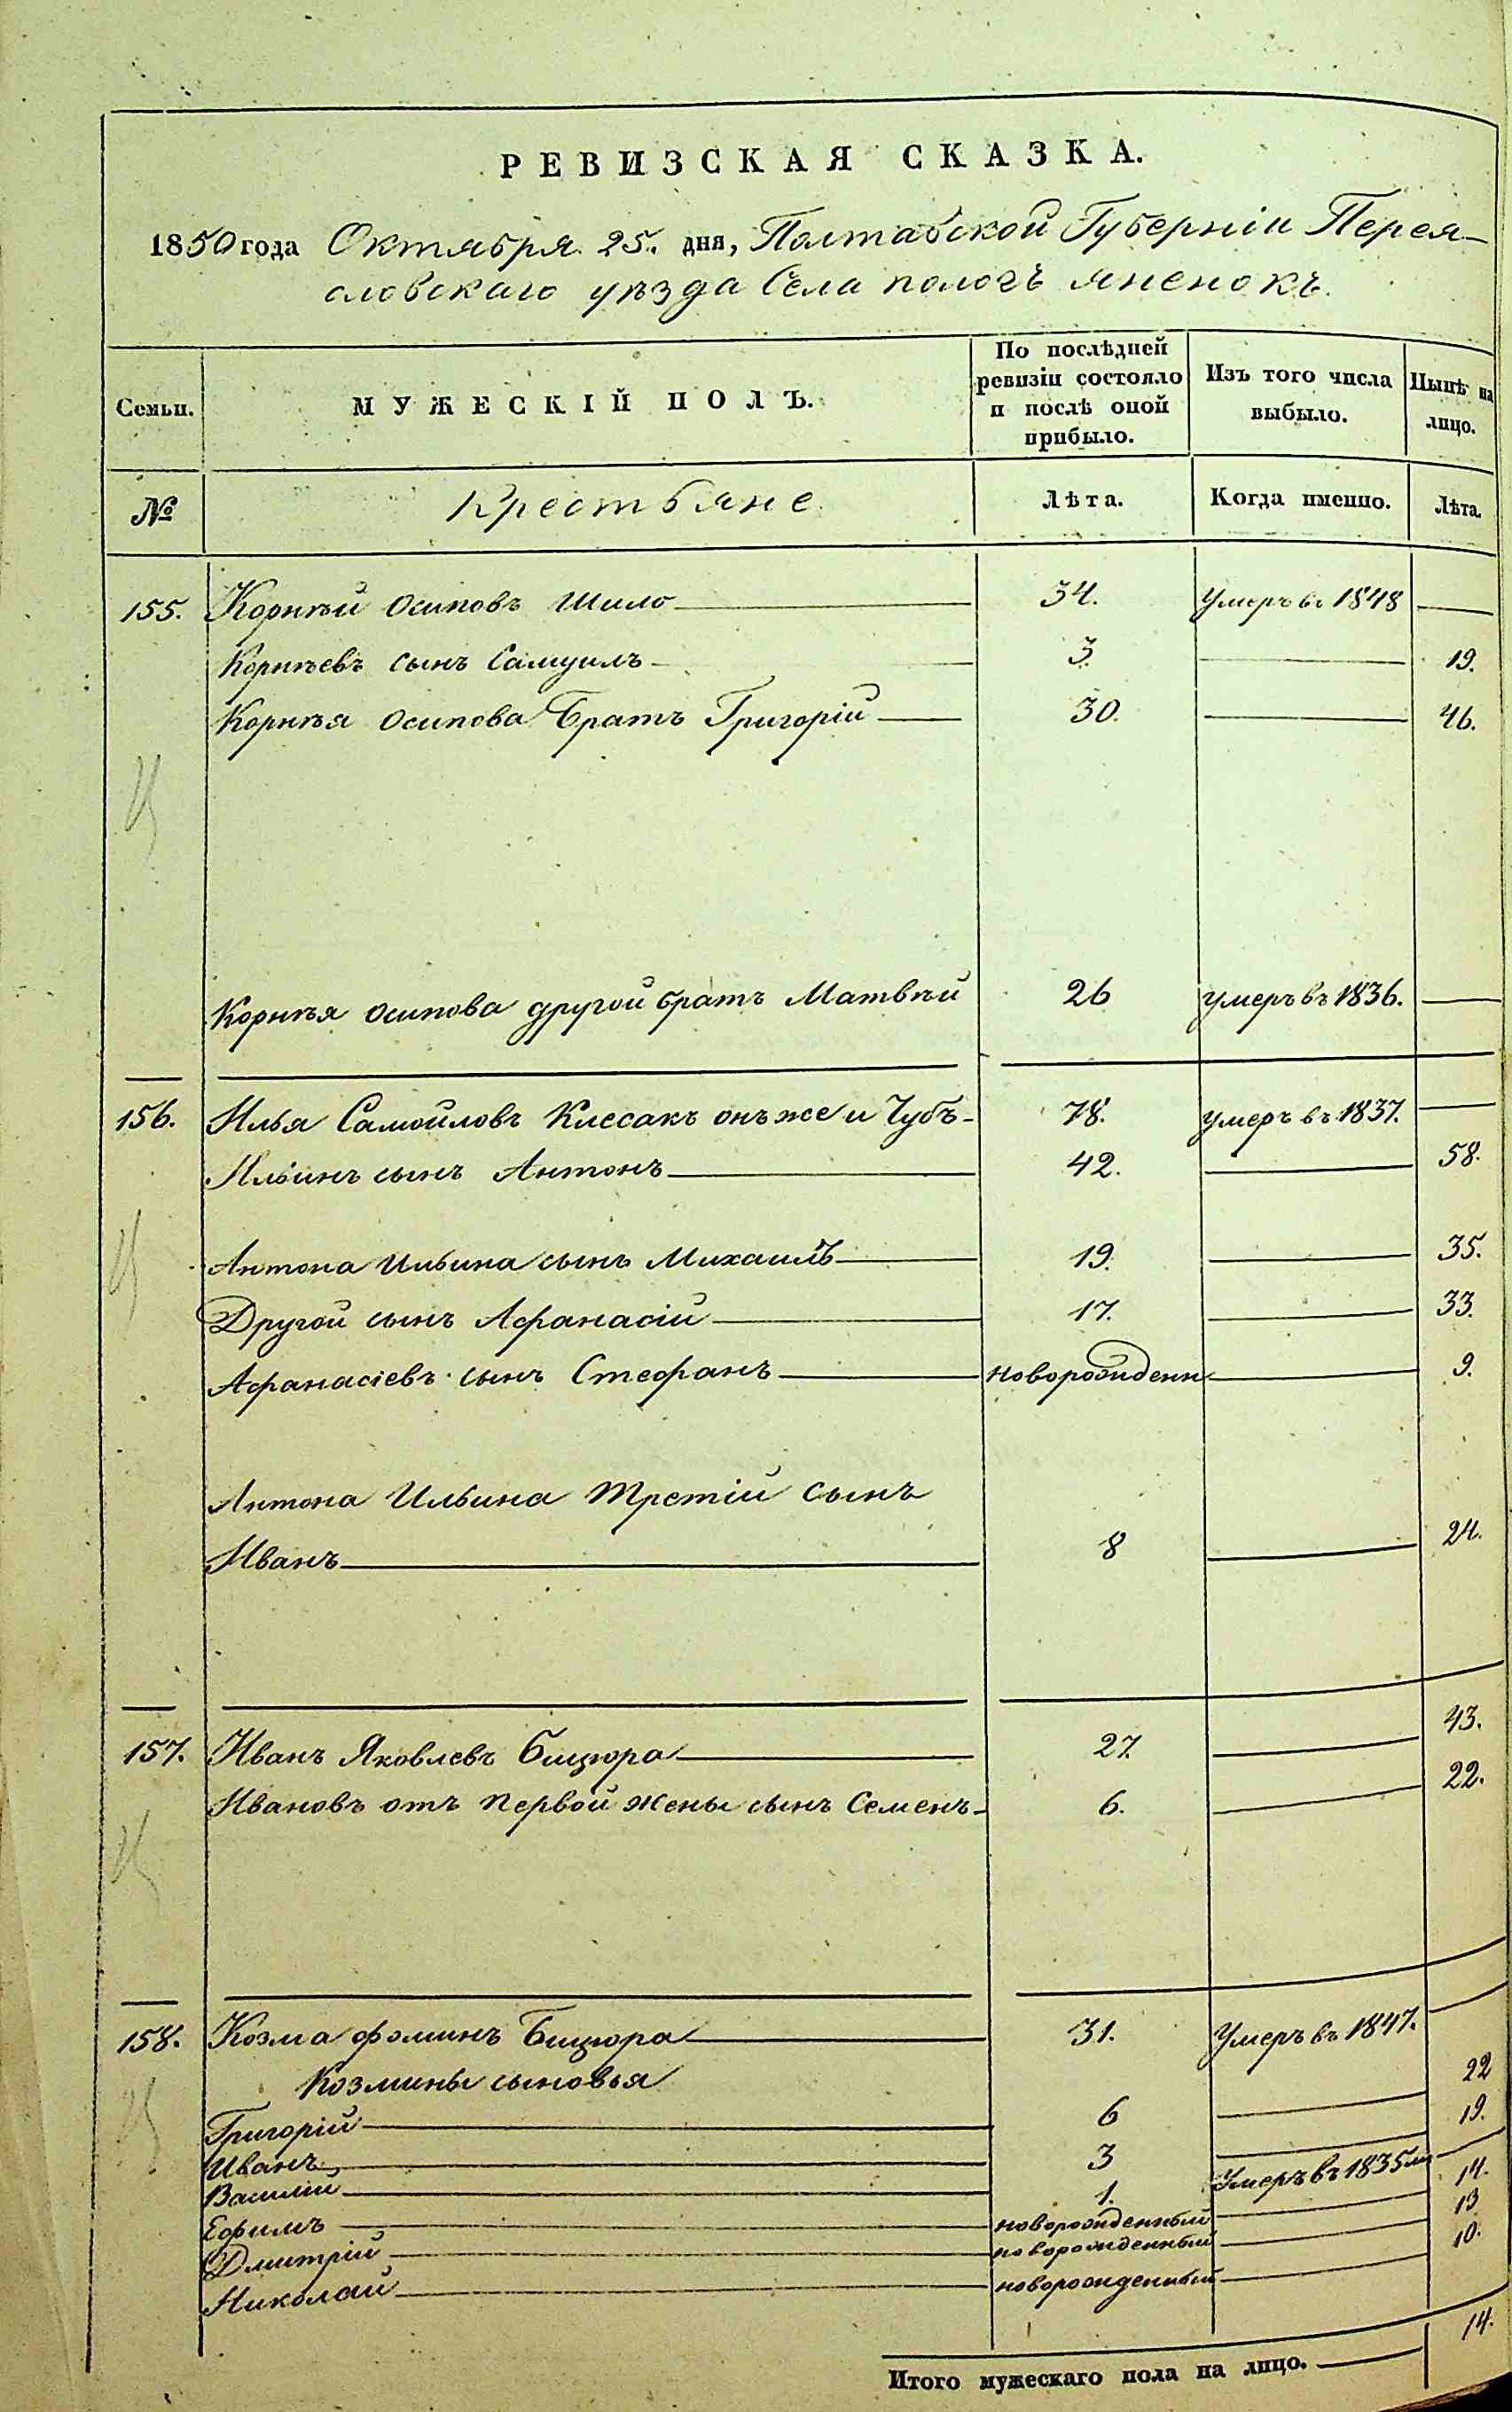 РЕВИЗСКАЯ СКАЗКА.
1850 года Октября 25. дня, Полтавской Губерніи Перея-
словскаго уѣзда Села пологъ яненокъ.
Семьи. МУЖЕСКІЙ ПОЛЪ. По послѣдней ревизіи состояло и послѣ оной прибыло. Изъ того числа выбыло. Нынѣ на лицо.
№ Крестьяне. Лѣта. Когда именно. Лѣта.
155. Корнѣй Осиповъ Шило 34. Умеръ въ 1848
Корнѣевъ сынъ Самуилъ 3. 19.
Корнѣя Осипова Братъ Григорій 30. 46.
Корнѣя Осипова другой братъ Матвѣй 26 умеръ въ 1836.
156. Илья Самойловъ Киссакъ онъ же и Чубъ 78. умеръ въ 1837.
Ильинъ сынъ Антонъ 42. 58.
Антона Ильина сынъ Михаилъ 19. 35.
Другой сынъ Афанасій 17. 33.
Афанасіевъ сынъ Стефанъ новорожденн 9.
Антона Ильина третій сынъ
Иванъ 8 24.
157. Иванъ Яковлевъ Бицюра 27. 43.
Ивановъ отъ первой жены сынъ Семенъ 6. 22.
158. Козма фоминъ Бицюра 31. Умеръ въ 1847.
Козмины сыновья
Григорій 6 22
Иванъ 3 19.
Василій 1. Умеръ въ 1835мъ
Ефимъ новорожденный 14.
Дмитрій новорожденный 13
Николай новорожденный 10.
Итого мужескаго пола на лицо. 14.